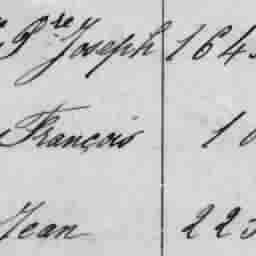 Pre Joseph 164
François 10
Jean 223